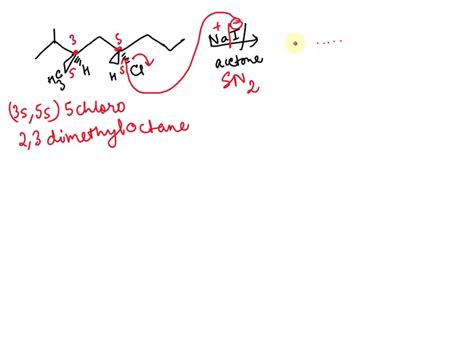 3
5
H3C
S
H
H
S
Cl
+ -
NaI
acetone
SN2
.....
(3s,5s) 5 chloro
2,3 dimethyl octane